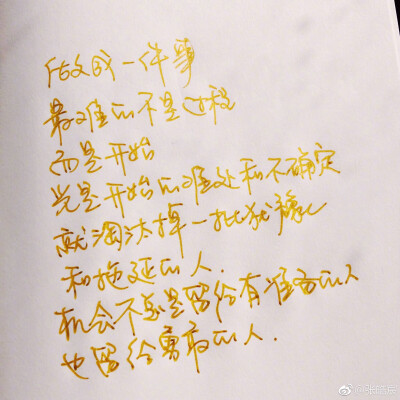 做成一件事
最难的不是过程
而是开始
光是开始的难处和不确定
就淘汰掉一批犹豫
和拖延的人.
机会不总是留给有准备的人
也留给勇敢的人.